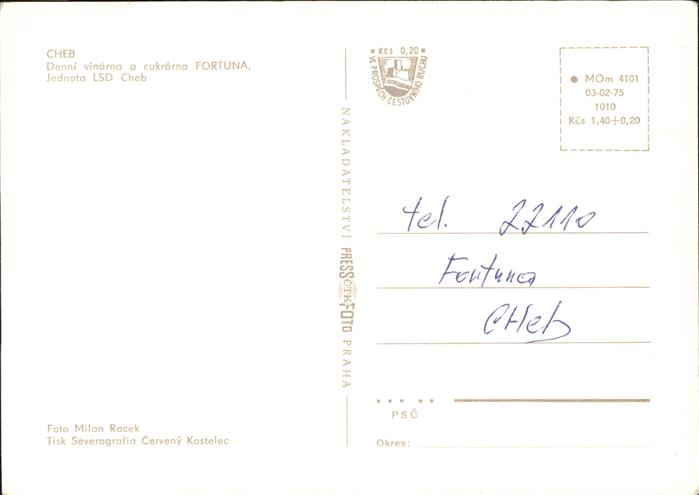 CHEB
Denní vinárna a cukrárna FORTUNA,
Jednota LSD Cheb
Foto Milan Racek
Tisk Severografia Červený Kostelec
NAKLADATELSTVÍ PRESSFOTO PRAHA
ČTK
Kčs 0,20
VE PROSPĚCH CESTOVNÍHO RUCHU
MOm 4101
03-02-75
1010
Kčs 1,40+0,20
tel. 22110
Fortuna
CHeb
PSČ
Okres: